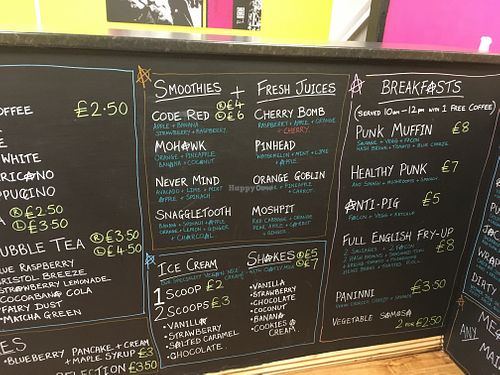 COFFEE £2.50
WHITE
BUBBLE TEA
Ⓡ £2.50
Ⓛ £3.50
Ⓡ £3.50
Ⓛ £4.50
BLUE RASPBERRY
BRISTOL BREEZE
STRAWBERRY LEMONADE
COCOABANG COLA
FAIRY DUST
MATCHA GREEN
BLUEBERRY PANCAKE + CREAM
+ MAPLE SYRUP £3
SELECTION £3.50
SMOOTHIES + FRESH JUICES
Ⓡ £4
Ⓛ £6
CODE RED
APPLE + BANANA
STRAWBERRY + RASPBERRY
MOHAWK
ORANGE + PINEAPPLE
BANANA + COCONUT
NEVER MIND
AVOCADO + LIME + MINT
APPLE + SPINACH
SNAGGLETOOTH
BANANA + SPINACH + APPLE
LEMON + GINGER
+ CHARCOAL
CHERRY BOMB
RASPBERRY + APPLE + ORANGE
+ CHERRY
PINHEAD
WATERMELON + MINT + LIME
+ APPLE
ORANGE GOBLIN
ORANGE + PINEAPPLE
+ CARROT
MOSHPIT
RED CABBAGE + ORANGE
PEAR APPLE + CARROT
+ GINGER
HappyCow
ICE CREAM
1 SCOOP £2
2 SCOOPS £3
• VANILLA
• STRAWBERRY
• SALTED CARAMEL
• CHOCOLATE
SHAKES Ⓡ £5
Ⓛ £7
• VANILLA
• STRAWBERRY
• CHOCOLATE
• COCONUT
• BANANA
• COOKIES &
CREAM
BREAKFASTS
(SERVED 10am - 12pm WITH 1 FREE COFFEE)
PUNK MUFFIN £8
HEALTHY PUNK £7
ANTI-PIG £5
FULL ENGLISH FRY-UP £8
PANINNI £3.50
VEGETABLE SAMOSA
2 FOR £2.50
WRAP
DIRTY
ANY